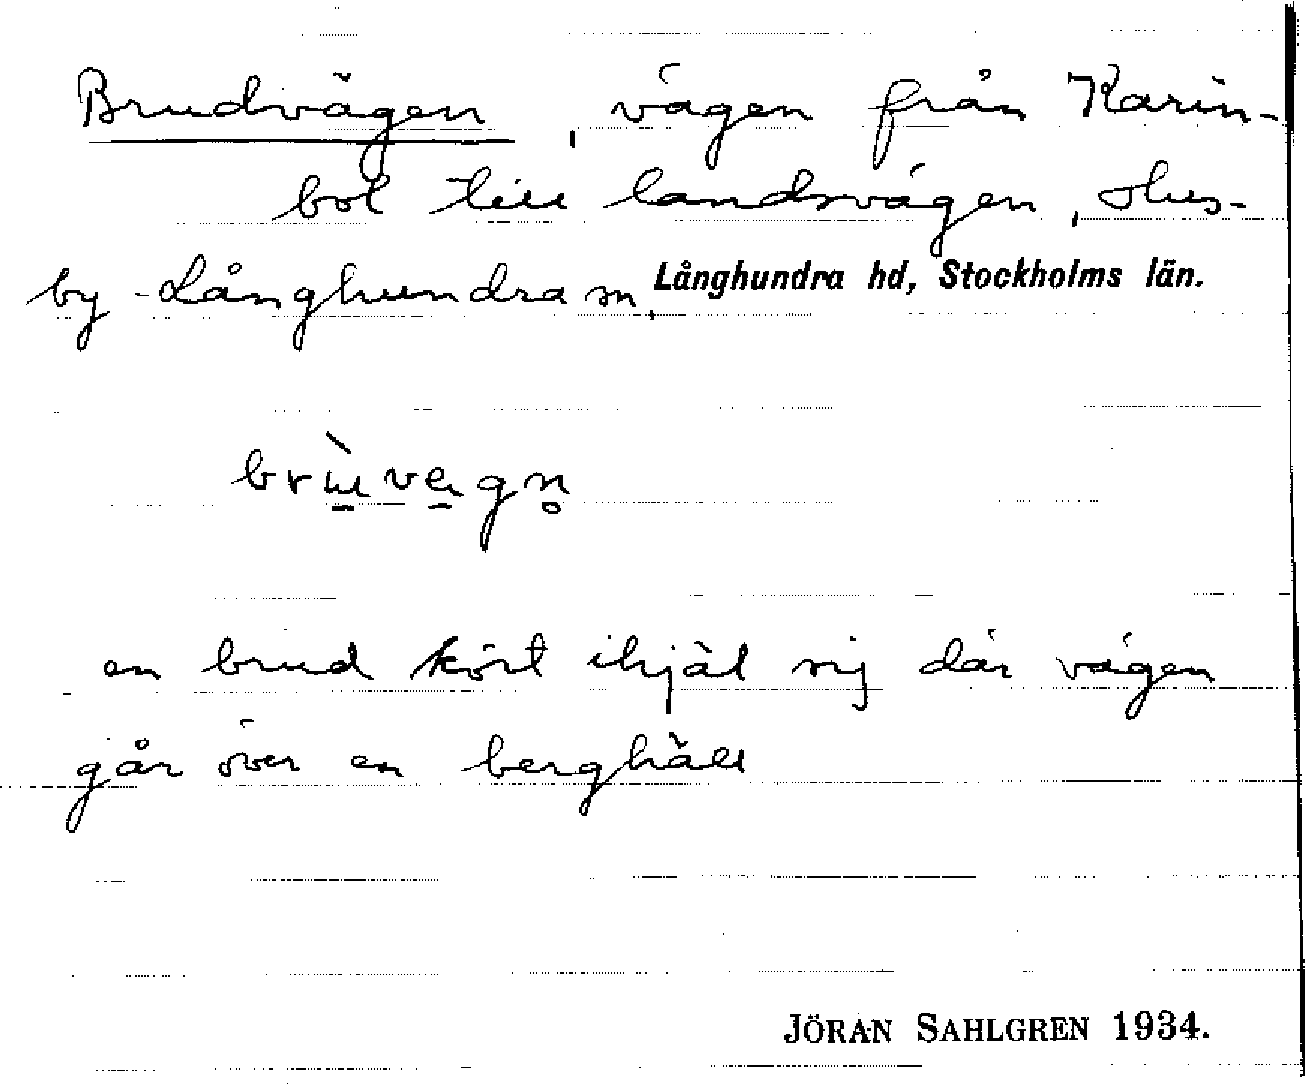 Brudvägen, vägen från Karin-
bol till landsvägen, Hus-
by-Långhundra sn, Långhundra hd, Stockholms län.
brùvegn̥
en brud kört ihjäl sig där vägen
går över en berghäll
JÖRAN SAHLGREN 1934.